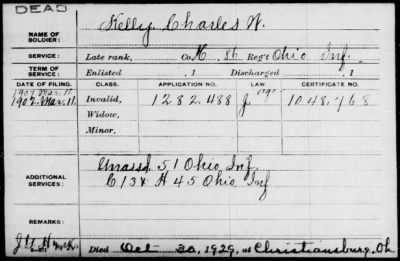 DEAD
NAME OF SOLDIER: Kelly, Charles W.
SERVICE: Late rank, Co. K. 86 Reg't Ohio Inf.
TERM OF SERVICE: Enlisted , 1 Discharged , 1
DATE OF FILING. CLASS. APPLICATION NO. LAW CERTIFICATE NO.
1902 Mar. 11. Invalid, 1282.488 1048.768
Widow,
Minor.
ADDITIONAL SERVICES: Unassd 51 Ohio Inf
& H 45 Ohio Inf
REMARKS:
Died Oct 30, 1929, at Christiansburg, Oh